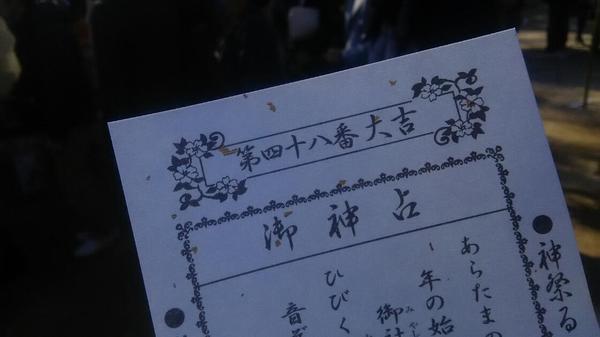 第四十八番大吉
御神占
神祭る
あらたまの
年の始
御社
みや
ひびく
音